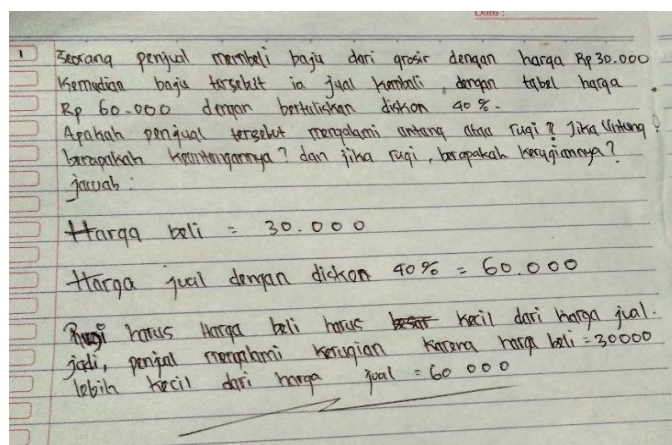 1 Seorang penjual membeli baju dari grosir dengan harga Rp 30.000
Kemudian baju tersebut ia jual kembali, dengan tabel harga
Rp 60.000 dengan bertuliskan diskon 40%.
Apakah penjual tersebut mengalami untung atau rugi? Jika Untung
berapakah keuntungannya? dan jika rugi, berapakah kerugiannya?
jawab :
Harga beli = 30.000
Harga jual dengan diskon 40% = 60.000
Rugi harus Harga beli harus besar kecil dari harga jual.
jadi, penjual mengalami kerugian karena harga beli = 30000
lebih kecil dari harga jual = 60 000